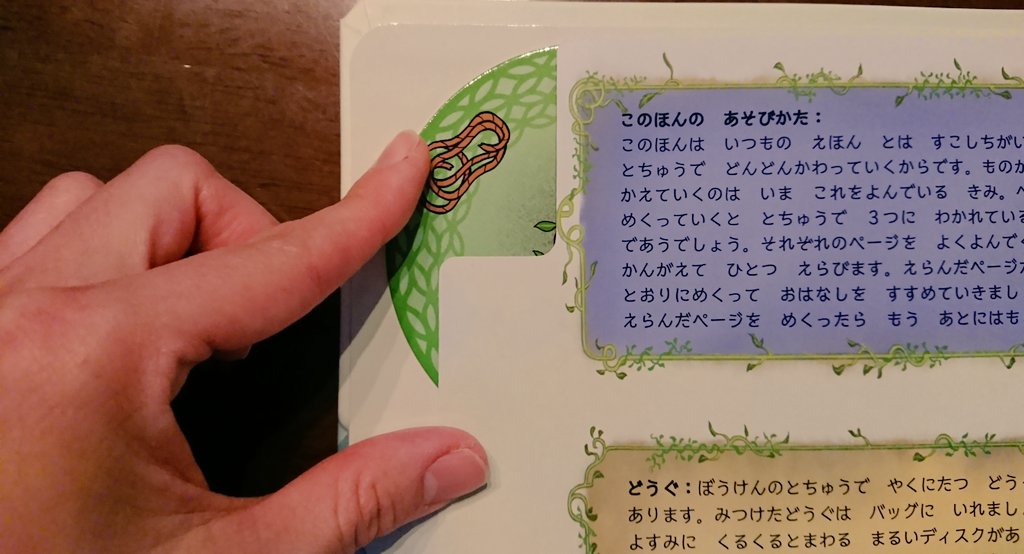 このほんの　あそびかた：
このほんは　いつもの　えほん　とは　すこしちがい
とちゅうで　どんどんかわっていくからです。ものが
かえていくのは　いま　これをよんでいる　きみ。
めくっていくと　とちゅうで　３つに　わかれている
であうでしょう。それぞれのページを　よくよんで
かんがえて　ひとつ　えらびます。えらんだページ
とおりにめくって　おはなしを　すすめていきまし
えらんだページを　めくったら　もう　あとにはも
どうぐ：ぼうけんのとちゅうで　やくにたつ　どう
あります。みつけたどうぐは　バッグに　いれまし
よすみに　くるくるとまわる　まるいディスクがあ